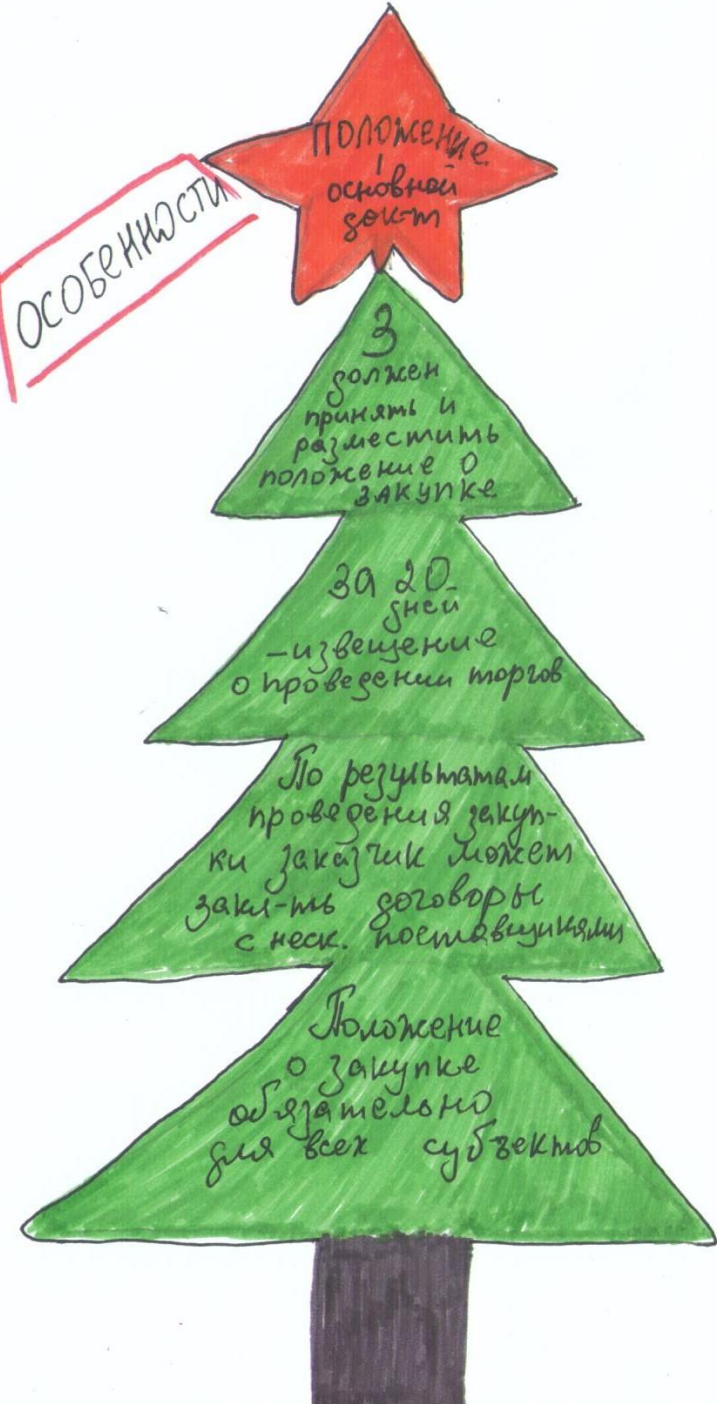 ОСОБЕННОСТИ
ПОЛОЖЕНИЕ
основной
док-т
З
должен
принять и
разместить
положение о
ЗАКУПКЕ
За 20
дней
-извещение
о проведении торгов
По результатам
проведения закуп-
ки заказчик может
закл-ть договоры
с неск. поставщиками
Положение
о закупке
обязательно
для всех субъектов